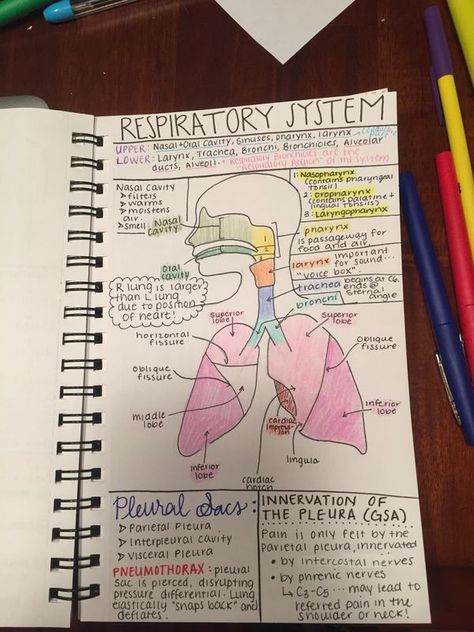 RESPIRATORY SYSTEM
UPPER: Nasal + Oral Cavity, Sinuses, pharynx, larynx
LOWER: Larynx, Trachea, Bronchi, Bronchioles, Alveolar
ducts, Alveoli. * Respiratory Bronchioles are the
"Respiratory Region" of my system
Nasal Cavity
> filters
> warms
> moistens
air.
> smell
Nasal
cavity
Oral
cavity
1: Nasopharynx
(contains pharyngeal
tonsil)
2: Oropharynx
(contains palatine +
lingual tonsils)
3: Laryngopharynx
1
2
3
pharynx
is passageway for
food and air.
larynx important
for sound...
"voice box".
trachea begins at C6.
ends @
sternal
angle
bronchi
R lung is larger
than L lung
due to position
of heart!
superior
lobe
superior
lobe
horizontal
fissure
oblique
fissure
oblique
fissure
middle
lobe
inferior
lobe
inferior
lobe
cardiac
impression
lingula
cardiac
notch
Pleural Sacs:
> Parietal Pleura
> Interpleural cavity
> Visceral Pleura
PNEUMOTHORAX: pleural
sac is pierced, disrupting
pressure differential. Lung
elastically "snaps back" and
deflates.
INNERVATION OF
THE PLEURA (GSA)
Pain is only felt by the
Parietal pleura, innervated
• by intercostal nerves
• by phrenic nerves
↳ C3-C5... may lead to
referred pain in the
shoulder or neck!